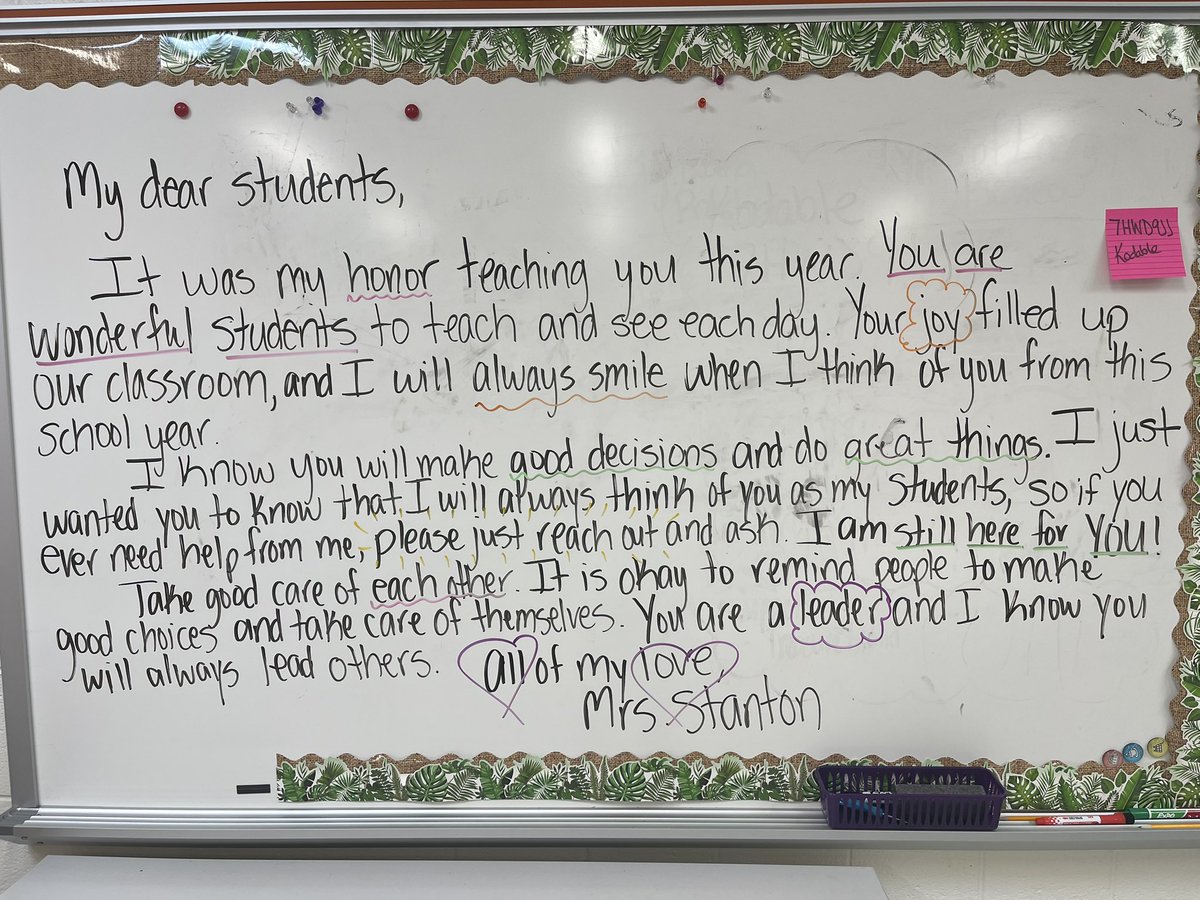 My dear students,
It was my honor teaching you this year. You are
wonderful students to teach and see each day. Your joy filled up
our classroom, and I will always smile when I think of you from this
school year.
I know you will make good decisions and do great things. I just
wanted you to know that I will always think of you as my students, so if you
ever need help from me, please just reach out and ask. I am still here for YOU!
Take good care of each other. It is okay to remind people to make
good choices and take care of themselves. You are a leader and I know you
will always lead others.
all of my love,
Mrs. Stanton
7HWD9JJ
Kodable
EXPO